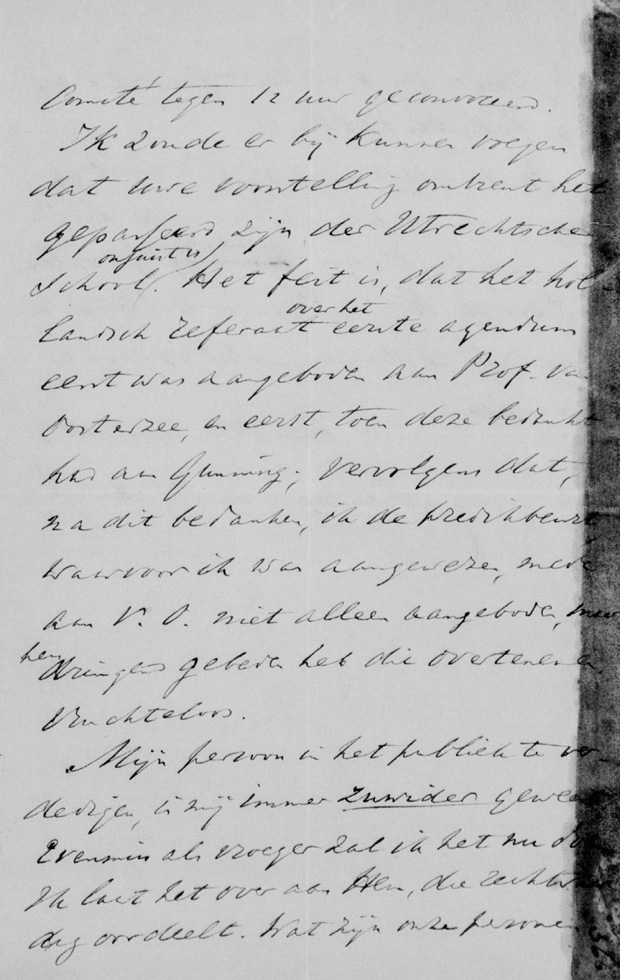 Comité tegen 12 uur geconvoceerd.
Ik zoude er bij kunnen voegen
dat uwe voorstelling omtrent het
gepasseerd zijn der Utrechtsche
onjuist is
School. Het feit is, dat het hol-
over het
landsch referaat eerste agendum
eerst was aangeboden aan Prof. van
Oosterzee, en eerst, toen deze bedankt
had aan Gunning; vervolgens dat,
na dit bedanken, ik de predikbeurt
waarvoor ik was aangewezen, mede
aan V. O. niet alleen aangeboden, maar
hem
dringend gebeden heb die over te nemen
Vruchteloos.
Mijn persoon in het publiek te ver-
dedigen, is mij immer zuwider geweest
Evenmin als vroeger zal ik het nu doen
Ik laat het over aan Hem, die rechtvaar
dig oordeelt. Wat zijn onze personen